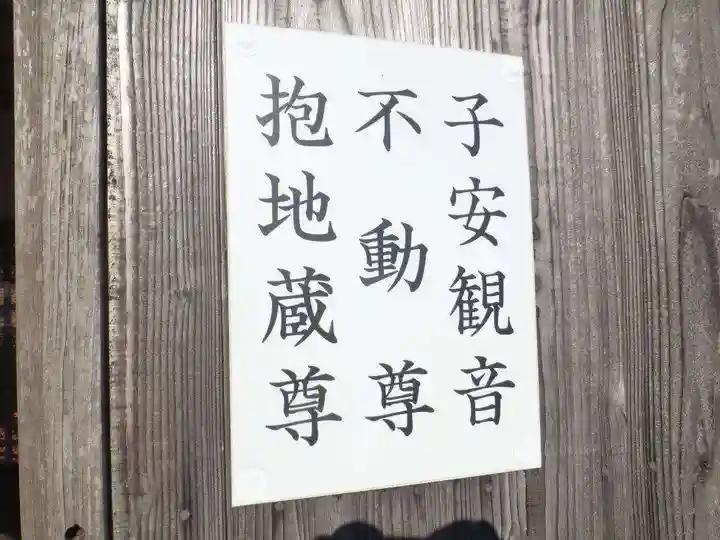 子安観音
不動尊
抱地蔵尊